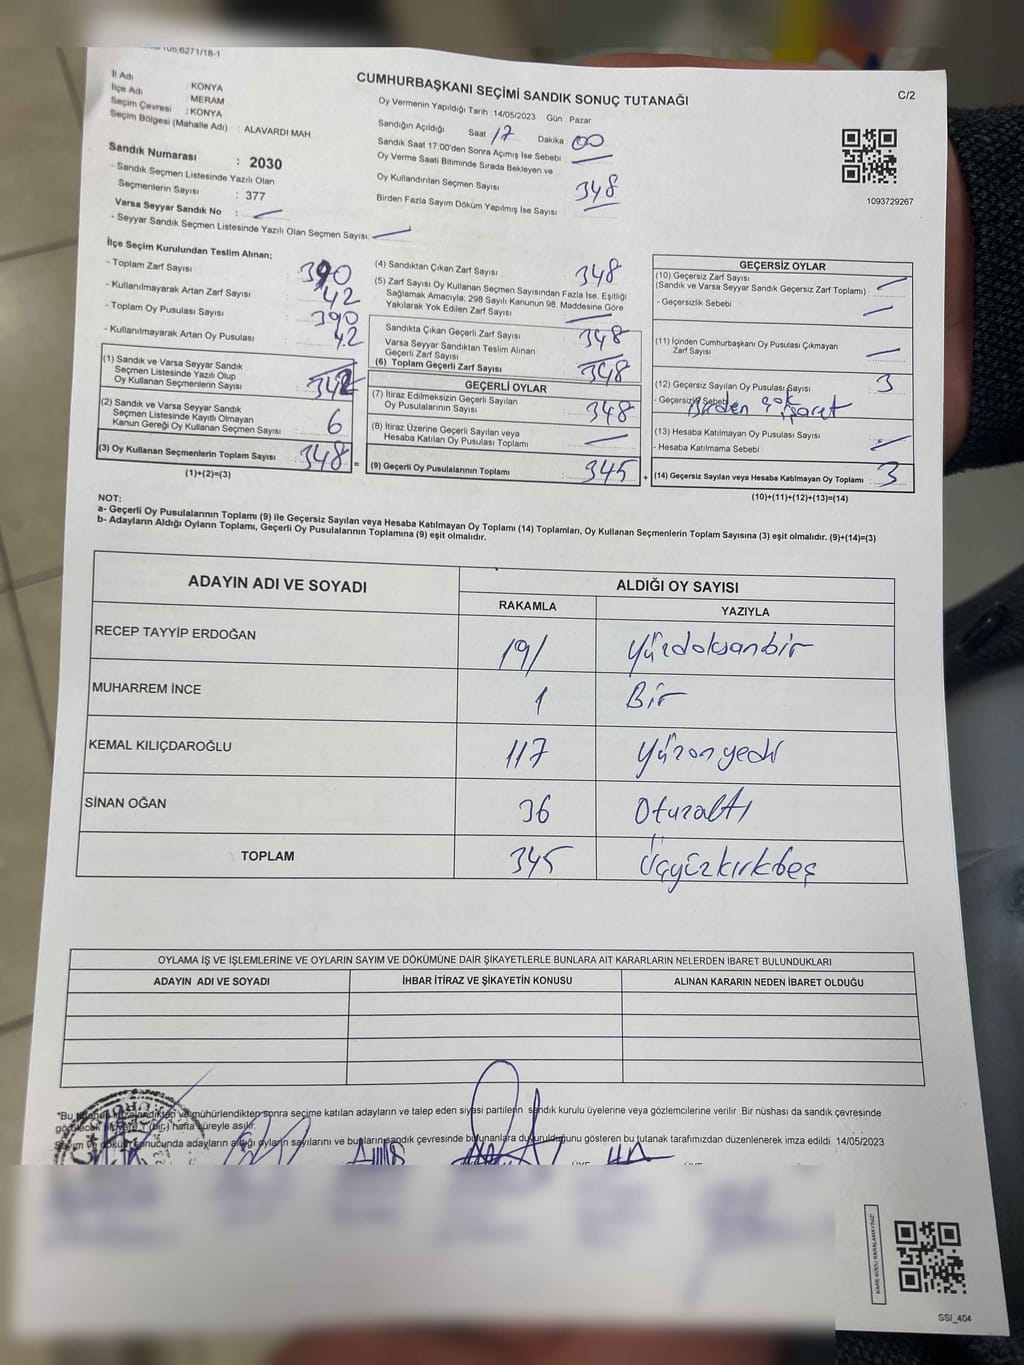 6271/18-1
CUMHURBAŞKANI SEÇİMİ SANDIK SONUÇ TUTANAĞI
C/2
İl Adı : KONYA
İlçe Adı : MERAM
Seçim Çevresi : KONYA
Seçim Bölgesi (Mahalle Adı) : ALAVARDI MAH
Sandık Numarası : 2030
- Sandık Seçmen Listesinde Yazılı Olan
Seçmenlerin Sayısı : 377
Varsa Seyyar Sandık No :
- Seyyar Sandık Seçmen Listesinde Yazılı Olan Seçmen Sayısı:
Oy Vermenin Yapıldığı Tarih : 14/05/2023 Gün : Pazar
Sandığın Açıldığı Saat 17 Dakika 00
Sandık Saat 17:00'den Sonra Açılmış İse Sebebi :
Oy Verme Saati Bitiminde Sırada Bekleyen ve
Oy Kullandırılan Seçmen Sayısı 348
Birden Fazla Sayım Döküm Yapılmış İse Sayısı :
1093729267
İlçe Seçim Kurulundan Teslim Alınan;
- Toplam Zarf Sayısı : 390
- Kullanılmayarak Artan Zarf Sayısı : 42
- Toplam Oy Pusulası Sayısı : 390
- Kullanılmayarak Artan Oy Pusulası : 42
(1) Sandık ve Varsa Seyyar Sandık
Seçmen Listesinde Yazılı Olup
Oy Kullanan Seçmenlerin Sayısı : 342
(2) Sandık ve Varsa Seyyar Sandık
Seçmen Listesinde Kayıtlı Olmayan
Kanun Gereği Oy Kullanan Seçmen Sayısı : 6
(3) Oy Kullanan Seçmenlerin Toplam Sayısı : 348 =
(1)+(2)=(3)
(4) Sandıktan Çıkan Zarf Sayısı : 348
(5) Zarf Sayısı Oy Kullanan Seçmen Sayısından Fazla İse, Eşitliği
Sağlamak Amacıyla, 298 Sayılı Kanunun 98. Maddesine Göre
Yakılarak Yok Edilen Zarf Sayısı :
Sandıkta Çıkan Geçerli Zarf Sayısı : 348
Varsa Seyyar Sandıktan Teslim Alınan
Geçerli Zarf Sayısı :
(6) Toplam Geçerli Zarf Sayısı : 348
GEÇERLİ OYLAR
(7) İtiraz Edilmeksizin Geçerli Sayılan
Oy Pusulalarının Sayısı : 348
(8) İtiraz Üzerine Geçerli Sayılan veya
Hesaba Katılan Oy Pusulası Toplamı :
(9) Geçerli Oy Pusulalarının Toplamı : 345 +
GEÇERSİZ OYLAR
(10) Geçersiz Zarf Sayısı
(Sandık ve Varsa Seyyar Sandık Geçersiz Zarf Toplamı) :
- Geçersizlik Sebebi :
(11) İçinden Cumhurbaşkanı Oy Pusulası Çıkmayan
Zarf Sayısı :
(12) Geçersiz Sayılan Oy Pusulası Sayısı : 3
- Geçersizlik Sebebi : Birden çok işaret
(13) Hesaba Katılmayan Oy Pusulası Sayısı :
- Hesaba Katılmama Sebebi :
(14) Geçersiz Sayılan veya Hesaba Katılmayan Oy Toplamı : 3
(10)+(11)+(12)+(13)=(14)
NOT:
a- Geçerli Oy Pusulalarının Toplamı (9) ile Geçersiz Sayılan veya Hesaba Katılmayan Oy Toplamı (14) Toplamları, Oy Kullanan Seçmenlerin Toplam Sayısına (3) eşit olmalıdır. (9)+(14)=(3)
b- Adayların Aldığı Oyların Toplamı, Geçerli Oy Pusulalarının Toplamına (9) eşit olmalıdır.
ADAYIN ADI VE SOYADI ALDIĞI OY SAYISI
RAKAMLA YAZIYLA
RECEP TAYYİP ERDOĞAN 191 Yüzdoksanbir
MUHARREM İNCE 1 Bir
KEMAL KILIÇDAROĞLU 117 Yüzonyedi
SİNAN OĞAN 36 Otuzaltı
TOPLAM 345 Üçyüzkırkbeş
OYLAMA İŞ VE İŞLEMLERİNE VE OYLARIN SAYIM VE DÖKÜMÜNE DAİR ŞİKAYETLERLE BUNLARA AİT KARARLARIN NELERDEN İBARET BULUNDUKLARI
ADAYIN ADI VE SOYADI İHBAR İTİRAZ VE ŞİKAYETİN KONUSU ALINAN KARARIN NEDEN İBARET OLDUĞU
"Bu tutanak imzalandıktan ve mühürlendikten sonra seçime katılan adayların ve talep eden siyasi partilerin sandık kurulu üyelerine veya gözlemcilerine verilir. Bir nüshası da sandık çevresinde
görülecek bir yere 1 (bir) hafta süreyle asılır.
Sayım ve döküm sonucunda adayların aldığı oyların sayılarını ve bunların sandık çevresinde bulunanlara duyurulduğunu gösteren bu tutanak tarafımızdan düzenlenerek imza edildi. 14/05/2023
KARE KODU KARALAMAYINIZ!
SSI_404